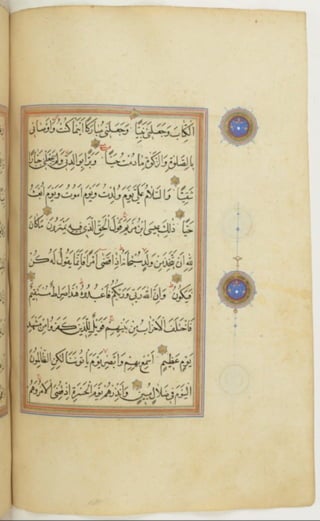 الكتاب وجعلني نبيا وجعلني مباركا اينما كنت واوصاني
بالصلوة والزكوة ما دمت حيا وبرا بوالدتي ولم يجعلني جبارا
شقيا والسلام علي يوم ولدت ويوم اموت ويوم ابعث
حيا ذلك عيسى ابن مريم قول الحق الذي فيه يمترون ما كان
لله ان يتخذ من ولد سبحانه اذا قضى امرا فانما يقول له كن
فيكون وان الله ربي وربكم فاعبدوه هذا صراط مستقيم
فاختلف الاحزاب من بينهم فويل للذين كفروا من مشهد
يوم عظيم اسمع بهم وابصر يوم ياتوننا لكن الظالمون
اليوم في ضلال مبين وانذرهم يوم الحسرة اذ قضي الامر وهم